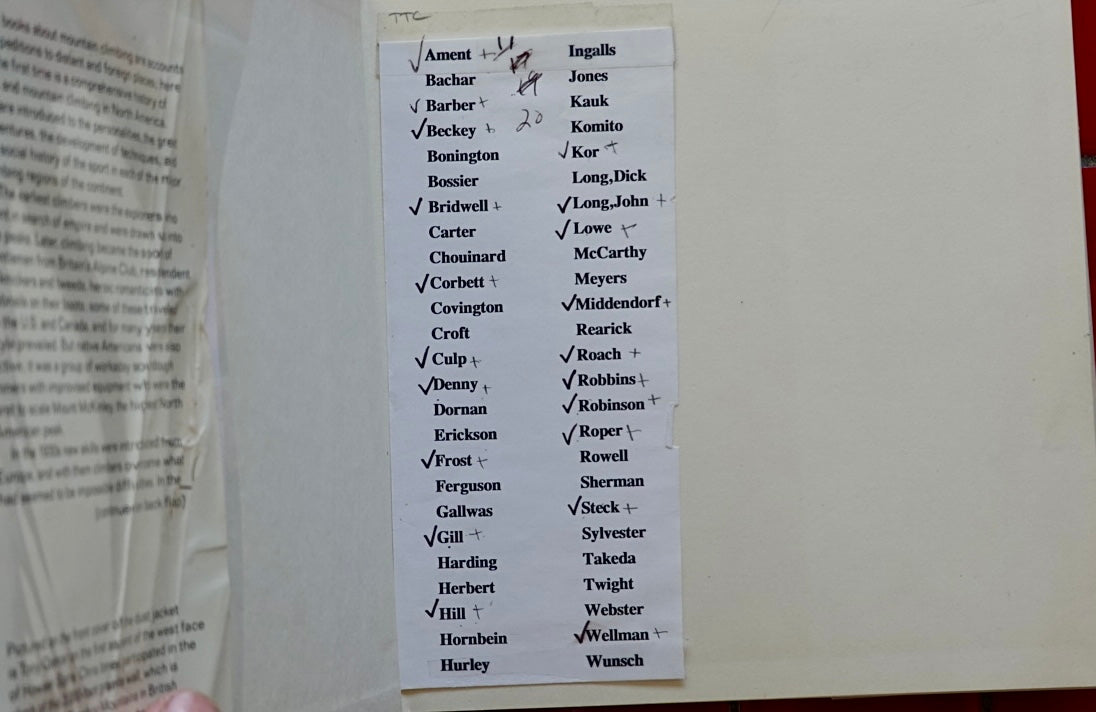 books about mountain climbing are accounts
peditions to distant and foreign places, here
e first time is a comprehensive history of
and mountain climbing in North America.
are introduced to the personalities, the great
entures, the development of techniques, and
social history of the sport in each of the major
bing regions of the continent.
The earliest climbers were the explorers who
in search of empire and were drawn
peaks. Later, climbing became the sport of
tlemen from Britain's Alpine Club, resplendent
the U.S. and Canada, and for many years their
prevailed. But native Americans were also
ctive. It was a group of workaday sourdough
with improved equipment who were the
to scale Mount McKinley, the highest North
American peak.
In the 1930s new skills were introduced from
Europe, and with them climbers overcame what
had seemed to be impossible difficulties. In the
[continued on back flap]
Pictured on the front cover of the dust jacket
is the first ascent of the west face
of participated in the
wall, which is
Mountains in British
TTC
✓Ament +
Bachar
✓Barber +
✓Beckey + 20
Bonington
Bossier
✓Bridwell +
Carter
Chouinard
✓Corbett +
Covington
Croft
✓Culp +
✓Denny +
Dornan
Erickson
✓Frost +
Ferguson
Gallwas
✓Gill +
Harding
Herbert
✓Hill +
Hornbein
Hurley
Ingalls
Jones
Kauk
Komito
✓Kor +
Long,Dick
✓Long,John +
✓Lowe +
McCarthy
Meyers
✓Middendorf +
Rearick
✓Roach +
✓Robbins +
✓Robinson +
✓Roper +
Rowell
Sherman
✓Steck +
Sylvester
Takeda
Twight
Webster
✓Wellman +
Wunsch